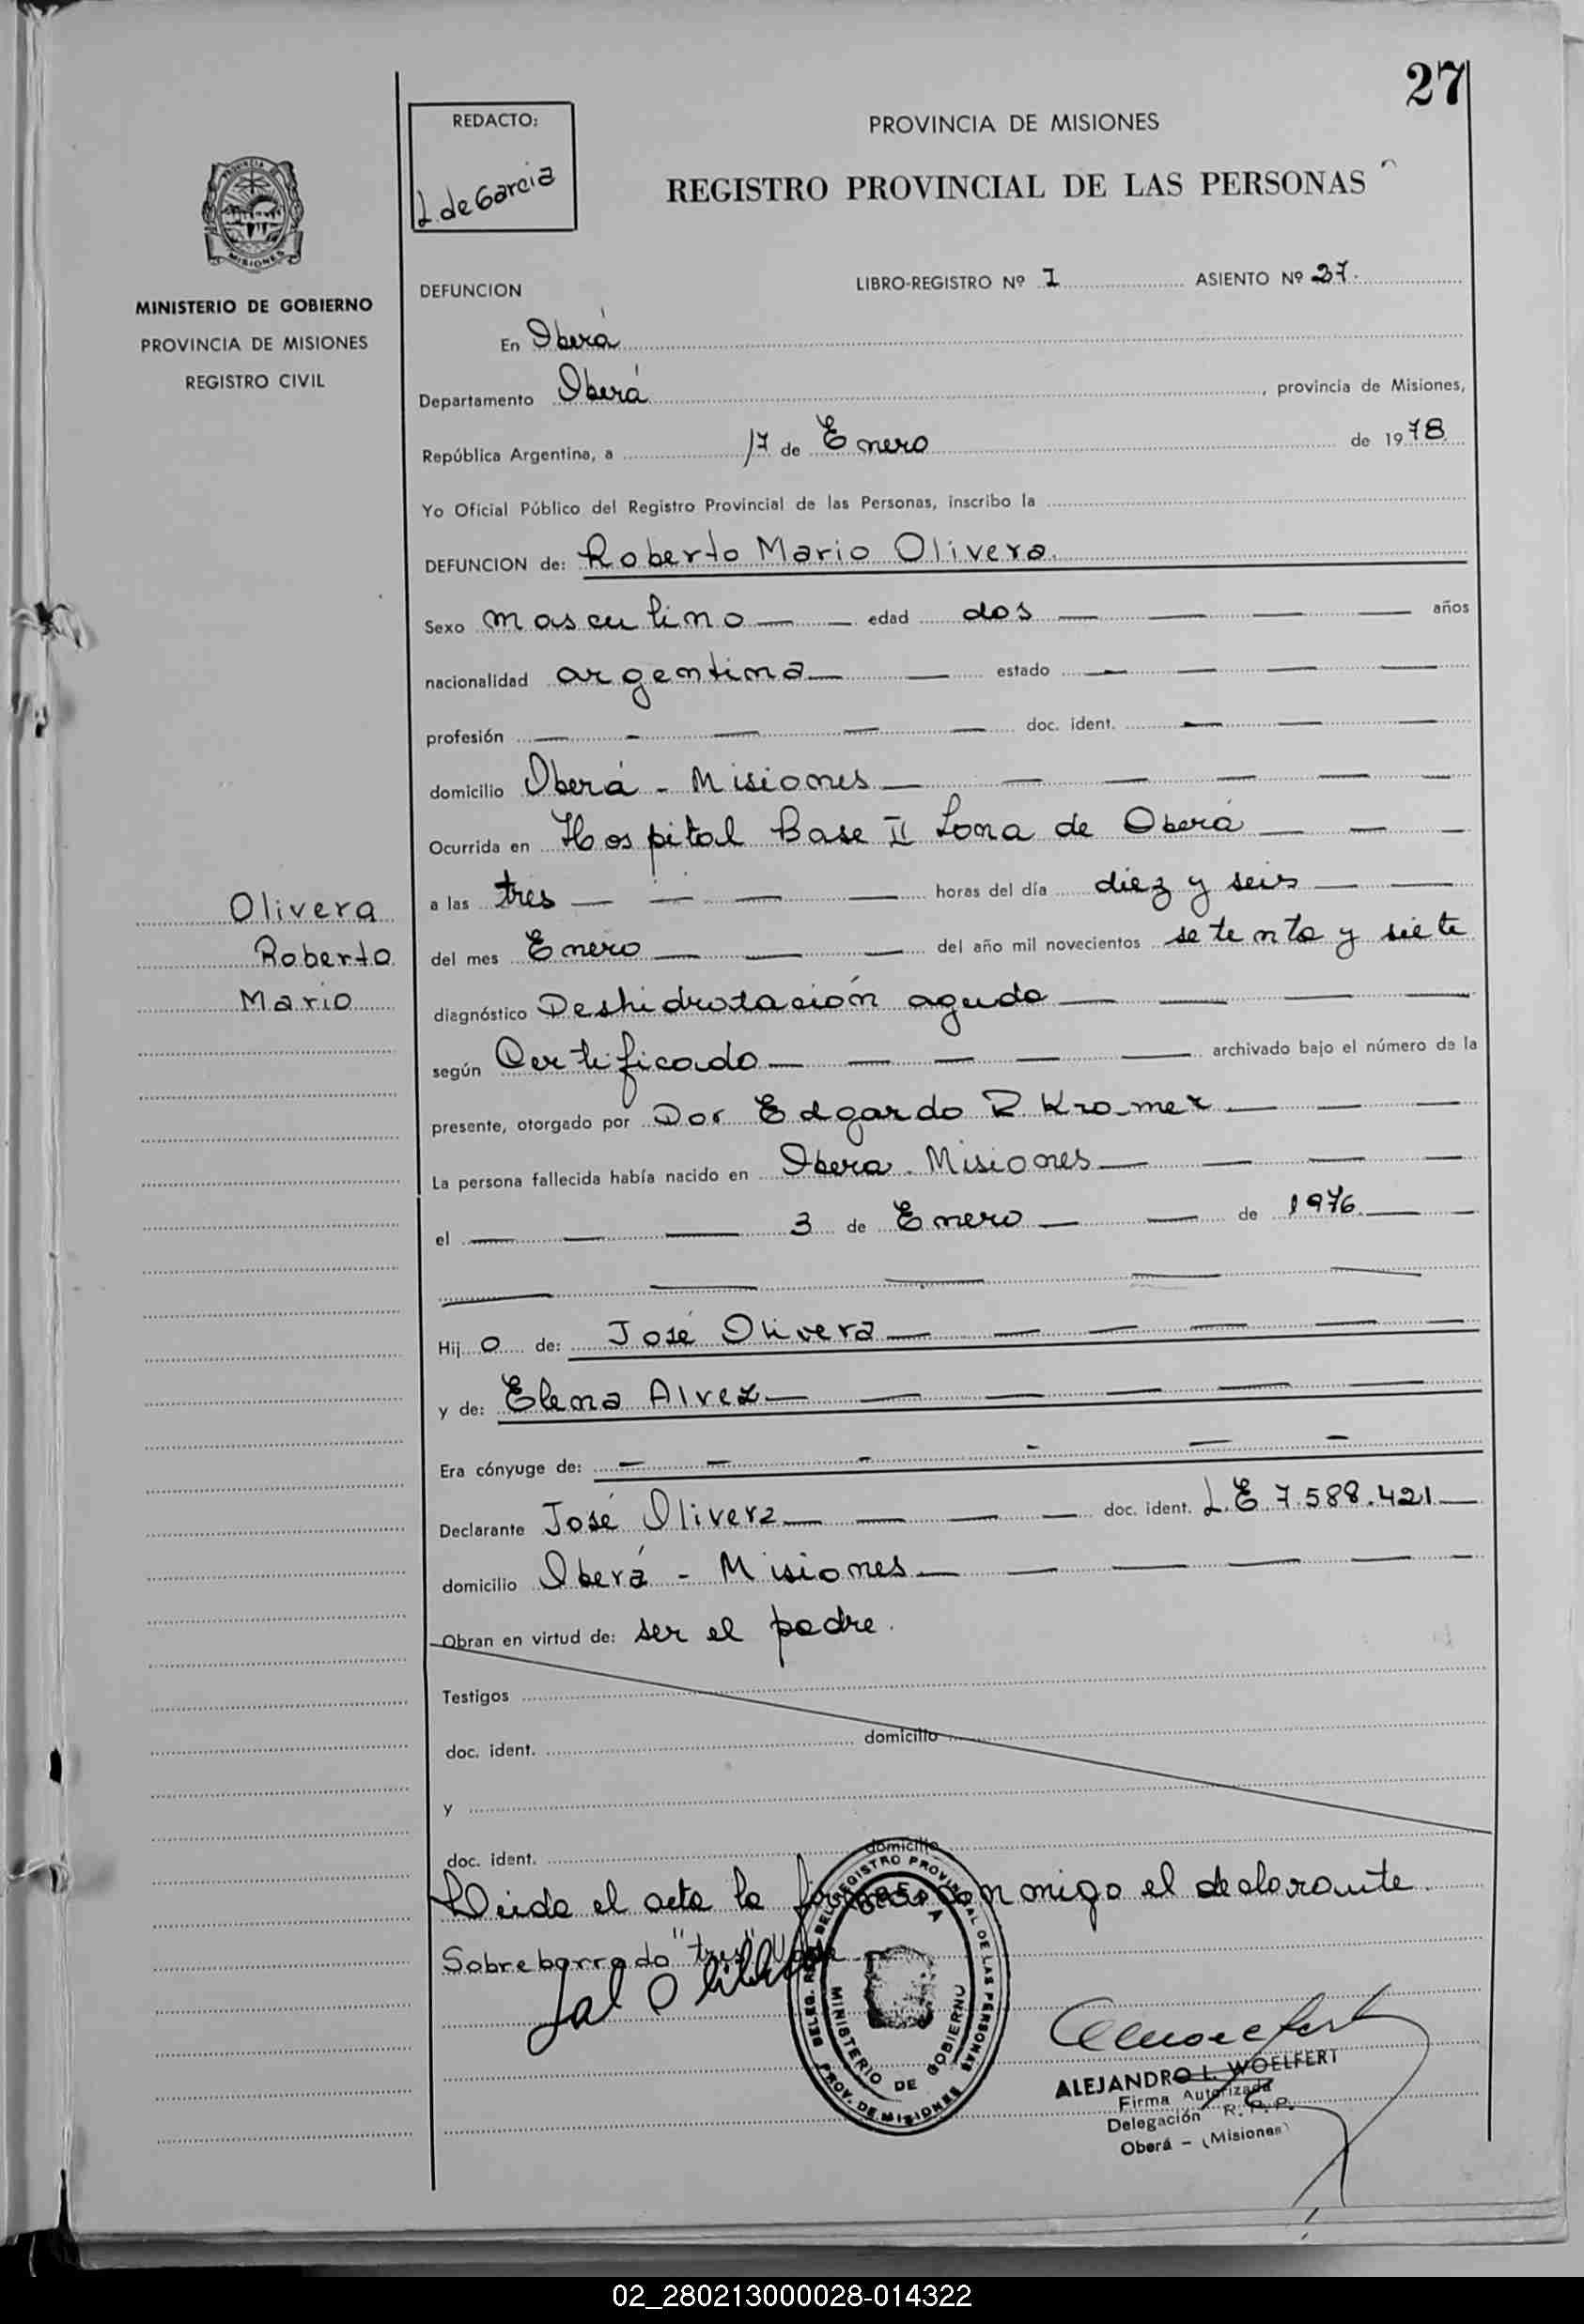 27
REDACTO:
L. de Garcia
PROVINCIA DE MISIONES
REGISTRO PROVINCIAL DE LAS PERSONAS
PROVINCIA DE
MISIONES
MINISTERIO DE GOBIERNO
PROVINCIA DE MISIONES
REGISTRO CIVIL
DEFUNCION
LIBRO-REGISTRO Nº I ASIENTO Nº 27.
En Oberá
Departamento Oberá, provincia de Misiones,
República Argentina, a 17 de Enero de 1978
Yo Oficial Público del Registro Provincial de las Personas, inscribo la
DEFUNCION de: Roberto Mario Olivera.
Sexo masculino — — edad dos — — — — años
nacionalidad argentina — — estado — — — —
profesión — - — — — doc. ident. — — —
domicilio Oberá - Misiones — — — — — —
Ocurrida en Hospital Base II Zona de Oberá — — —
a las tres — — — — horas del día diez y seis — —
del mes Enero — — — del año mil novecientos setenta y siete
diagnóstico Deshidratación aguda — — — —
según Certificado — — — — — archivado bajo el número de la
presente, otorgado por Dor Edgardo R Kramer — — —
La persona fallecida había nacido en Obera - Misiones — — — —
el — — — 3 de Enero — — de 1976. — —
Hijo de: José Olivera — — — — — —
y de: Elena Alvez — — — — — —
Era cónyuge de: — — - - — -
Declarante José Olivera — — — — doc. ident. L.E 7.588.421 —
domicilio Oberá - Misiones — — — — — —
Obran en virtud de: ser el padre.
Testigos
doc. ident. domicilio
y
doc. ident. domicilio
Leida el acta la firma conmigo el declarante.
Sobreborrado "tres" Vale
Olivera
Roberto
Mario
DELEG. REG. DEL REGISTRO PROVINCIAL DE LAS PERSONAS
PROV. DE MISIONES
OBERA
MINISTERIO DE GOBIERNO
ALEJANDRO L. WOELFERT
Firma Autorizada
Delegación R. P. P.
Oberá - (Misiones)
02_280213000028-014322